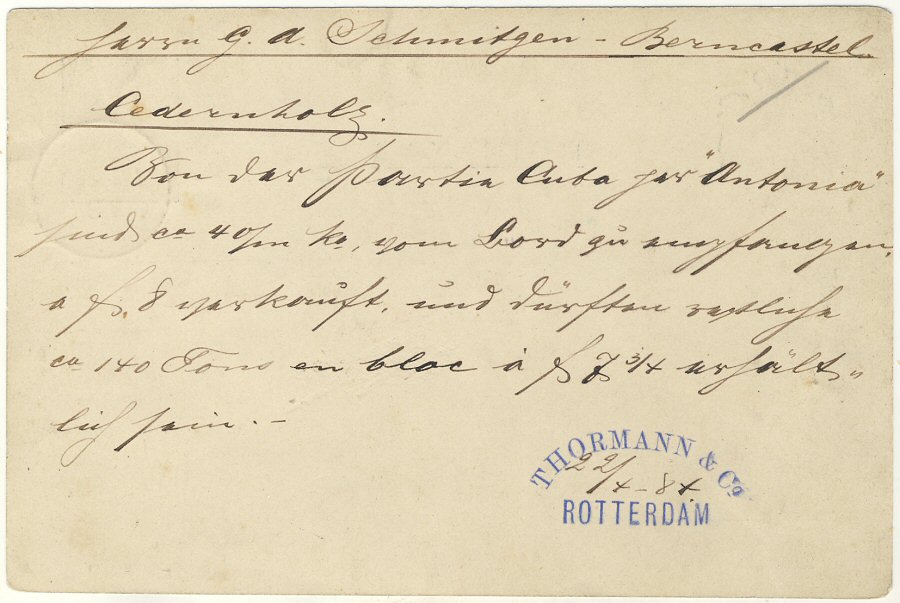 Herrn G. A. Schmitgen - Berncastel.
Cedernholz.
Von der Partie Cuba per "Antonia"
sind ca 40/m ko, vom Bord zu empfangen,
a f. 8 verkauft, und dürften restliche
ca 140 Tons en bloc à f 7 3/4 erhält„
lich sein. -
THORMANN & Co
22/4-84.
ROTTERDAM